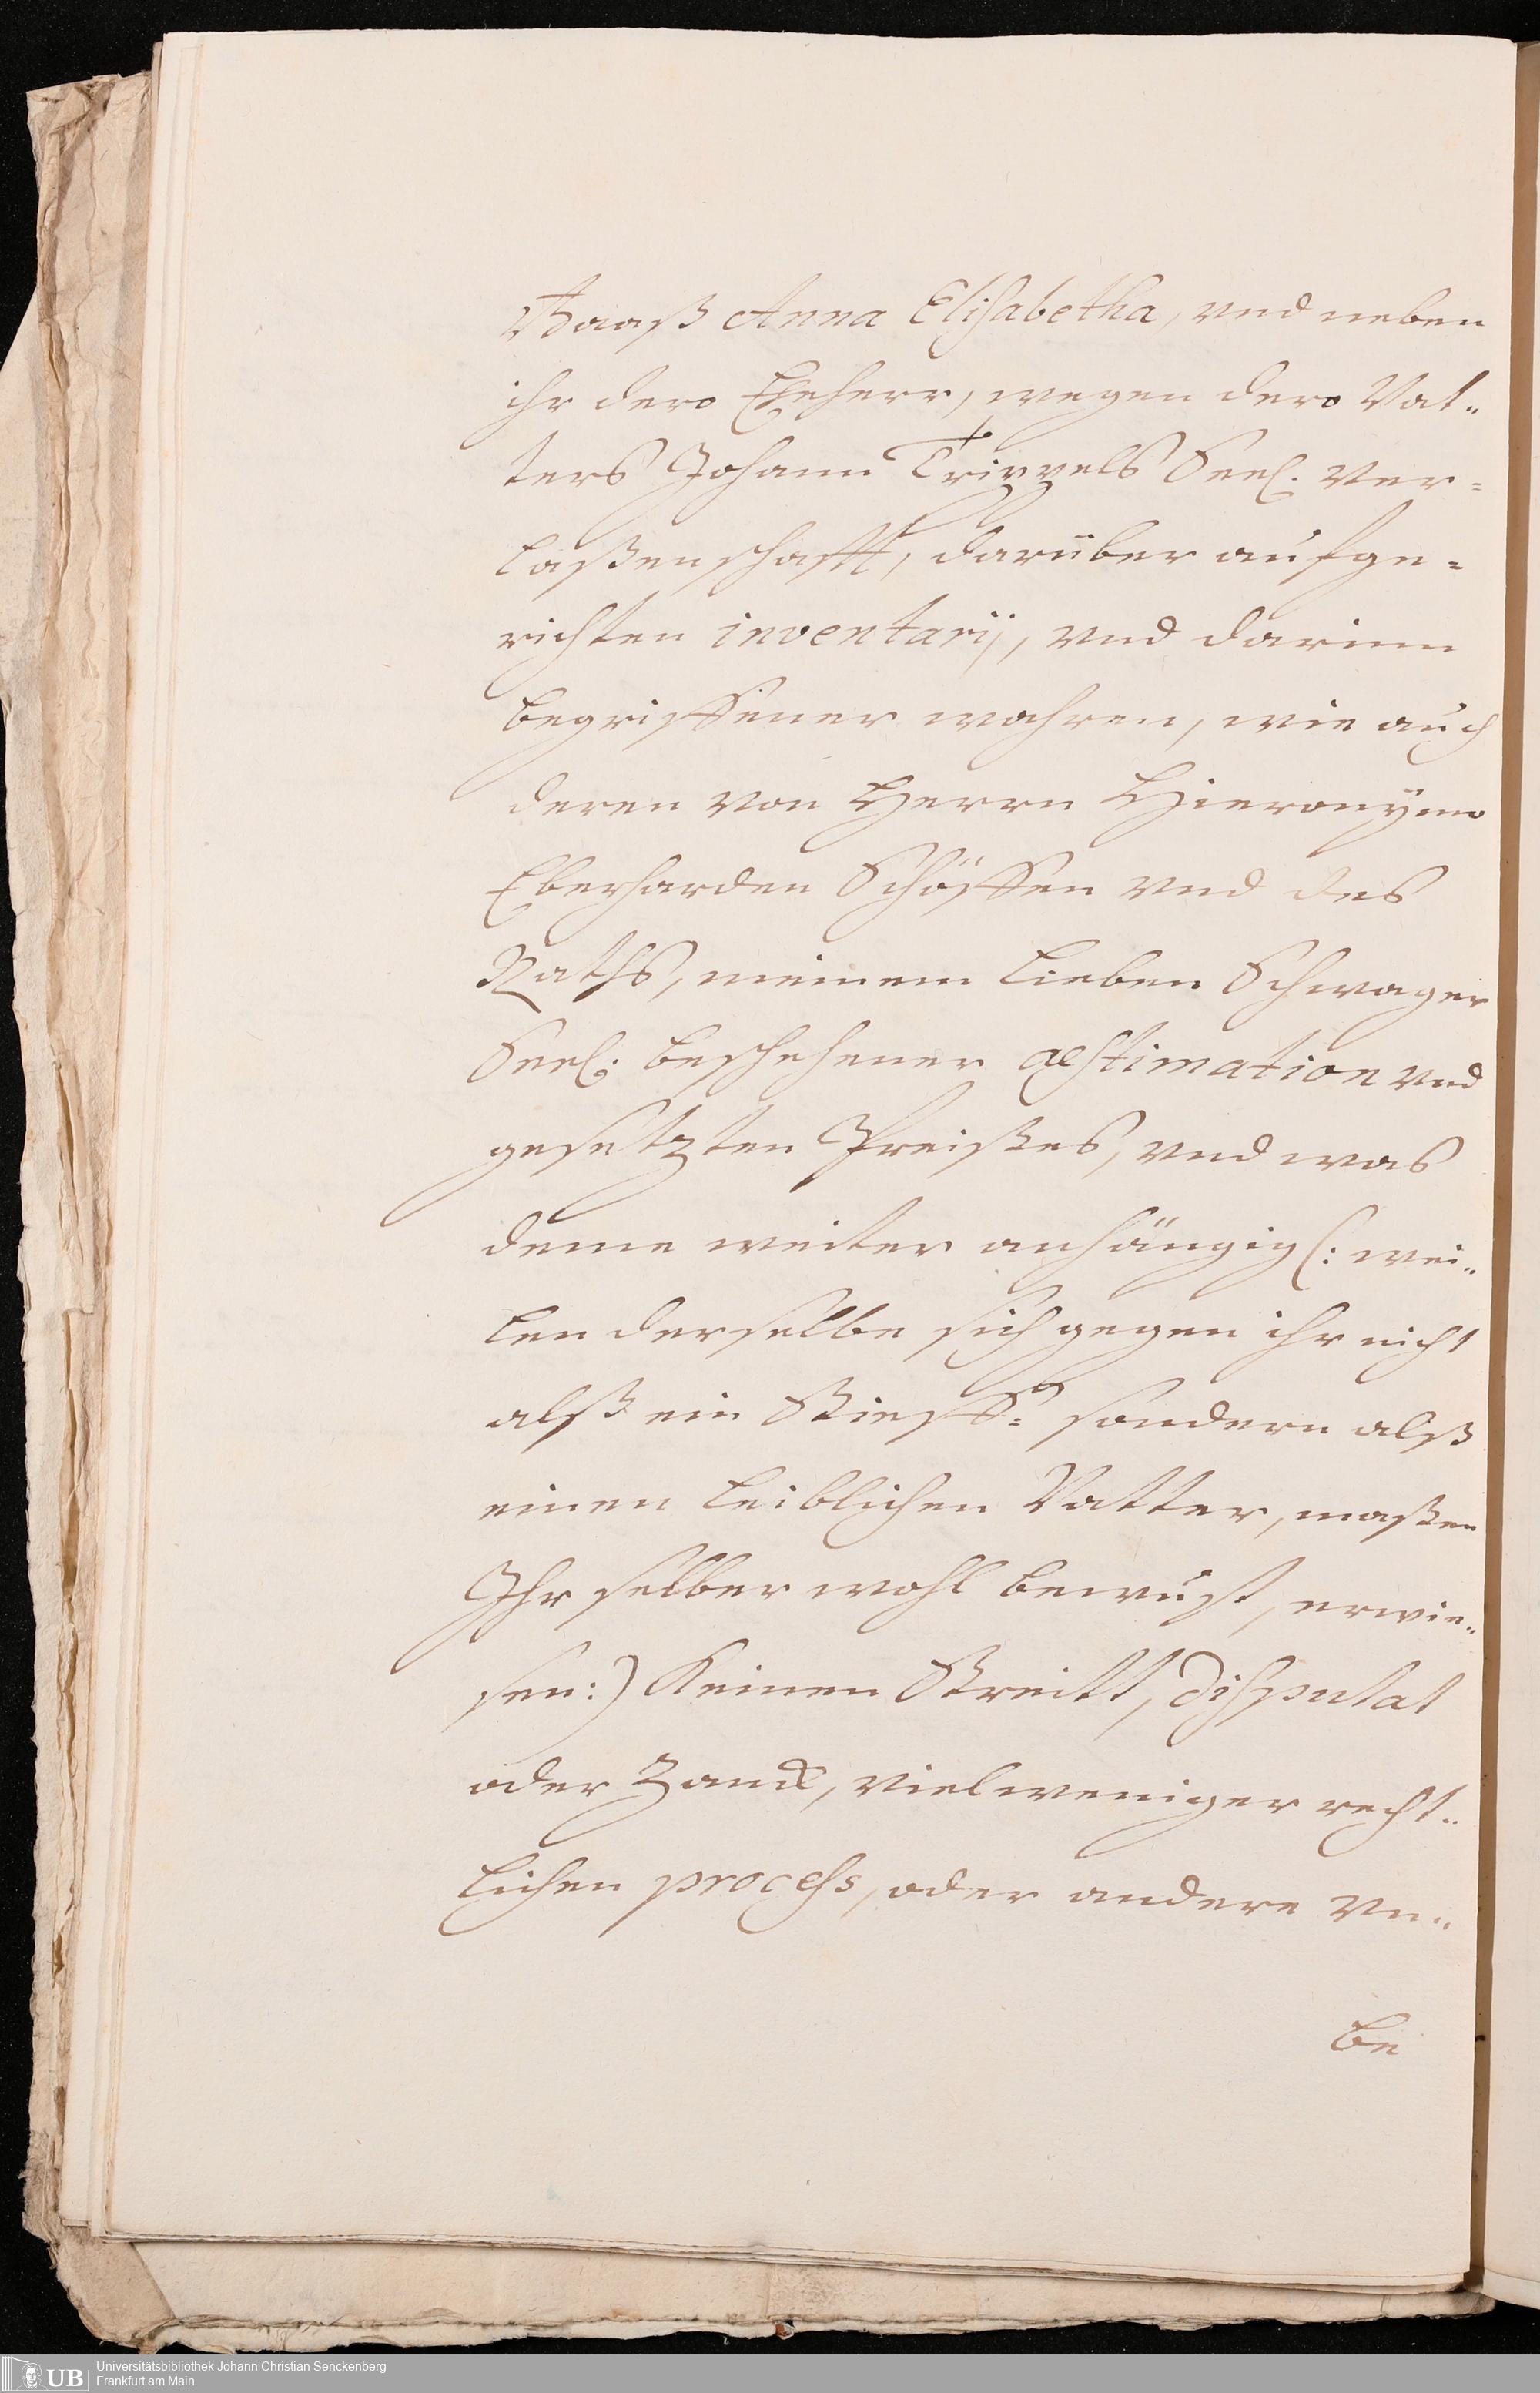 Baaß Anna Elisabetha, vnd neben
ihr dero Eheherr, wegen dero Vat„
ters Johann Trippels Seel. Ver=
laßenschafft, darüber aufge=
richten inventarij, vnd darinn
begriffener wahren, wie auch
deren von Herrn Hieronymo
Eberharden Schöffen vnd des
Raths, meinem lieben Schwager
Seel. beschehener æstimation vnd
gesetzten Preißes, vnd was
deme weiter anhängig (: wei„
len derselbe sich gegen ihr nicht
alß ein Stieff= sondern alß
einen leiblichen Vatter, maßen
Ihr selber wohl bewust, erwie„
sen:) Keinen Streitt, disputat
oder Zanck, vielweniger recht„
lichen process, oder andere vn„
be
UB
Universitätsbibliothek Johann Christian Senckenberg
Frankfurt am Main